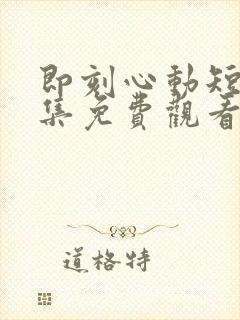 即刻心動短
集免費觀看
道格特